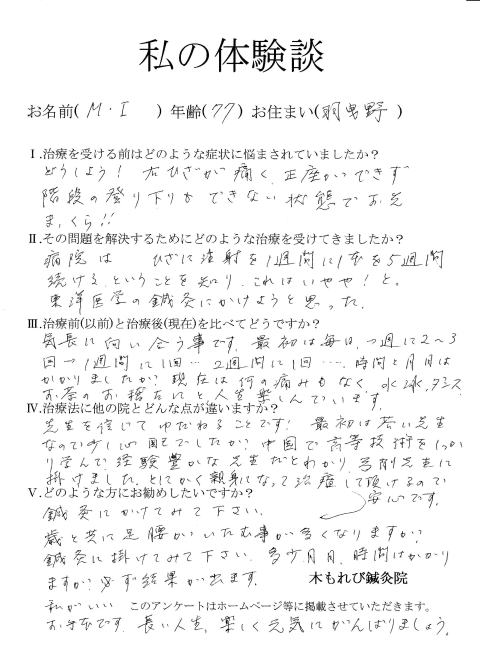 私の体験談
お名前( M・I ) 年齢(77) お住まい(羽曳野)
Ⅰ.治療を受ける前はどのような症状に悩まされていましたか?
どうしよう! 右ひざが痛く、正座ができず
階段の登り下りができない状態でお先
まっくら!!
Ⅱ.その問題を解決するためにどのような治療を受けてきましたか?
病院は ひざに注射を1週間に1本を5週間
続ける、ということを知り、これはいやや!と。
東洋医学の鍼灸にかけようと思った。
Ⅲ.治療前(以前)と治療後(現在)を比べてどうですか?
気長に向い合う事です。最初は毎日、一週に2~3
回→1週間に1回…2週間に1回…、時間と月日は
かかりましたが、現在は何の痛みもなく、水泳、ダンス
お茶のお稽古にと人生楽しんでいます。
Ⅳ.治療法に他の院とどんな点が違いますか?
先生を信じてゆだねることです! 最初は若い先生
なので少し心配でしたが、中国で高等技術をしっか
り学んで経験豊かな先生だとわかり、弓削先生に
掛けました。とにかく親身になって治療して頂けるので
安心です。
Ⅴ.どのような方にお勧めしたいですか?
鍼灸にかけてみて下さい。
歳と共に足腰がいたむ事が多くなりますが、
鍼灸に掛けてみて下さい。多少月日、時間はかかり
ますが、必ず結果が出ます。 木もれび鍼灸院
私がいい このアンケートはホームページ等に掲載させていただきます。
お手本です。長い人生、楽しく元気にがんばりましょう。